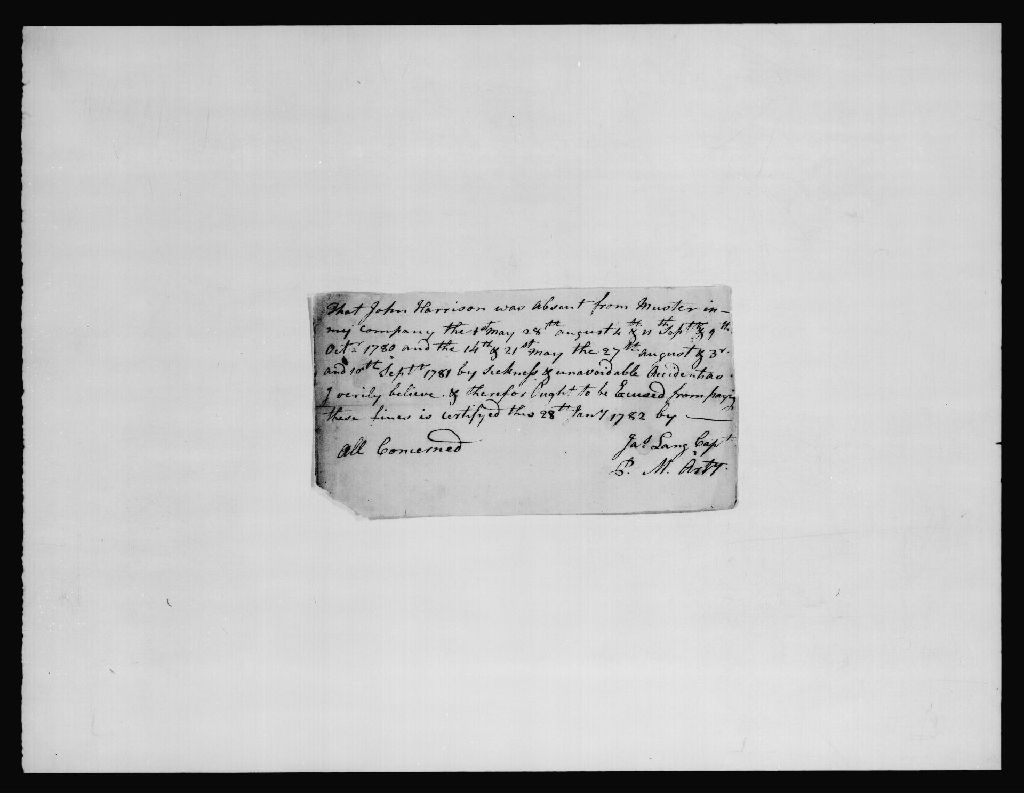 That John Harrison was absent from Muster in
my company the 1st May 28th august 4th & 11th Sept & 9th
Octr 1780 and the 14th & 21st May the 27th august & 3r
and 10th Septr 1781 by Sickness & unavoidable Accident as
I verily believe & therefor Ought to be Excused from paying
these fines is certifyed this 28th Jany 1782 by
Jas Lang Capt
All Concerned
P. M. Arty